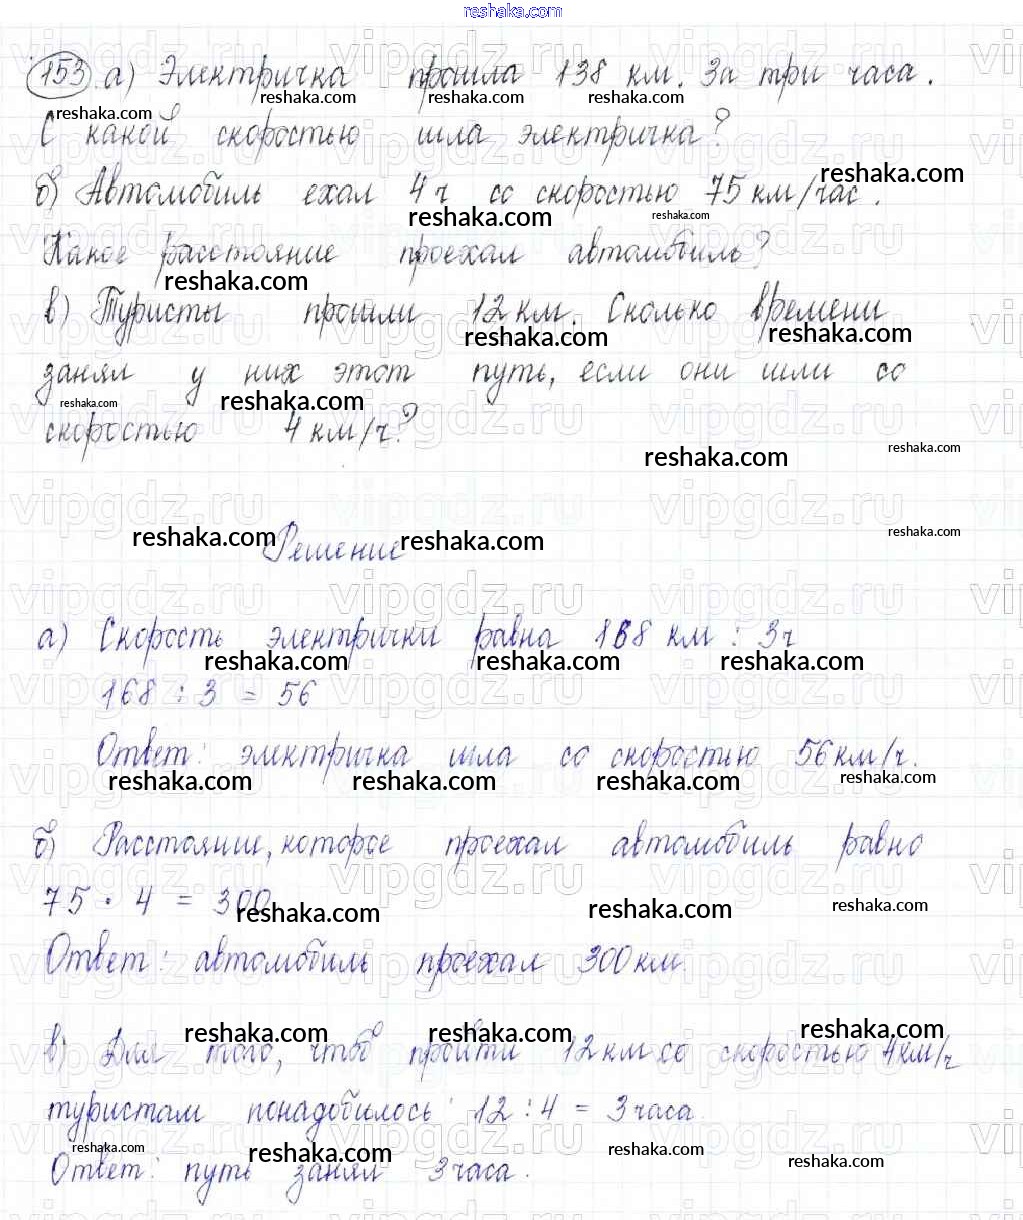 reshaka.com
153 а) Электричка прошла 138 км. За три часа.
С какой скоростью шла электричка?
б) Автомобиль ехал 4 ч со скоростью 75 км/час.
Какое расстояние проехал автомобиль?
в) Туристы прошли 12 км. Сколько времени
занял у них этот путь, если они шли со
скоростью 4 км/ч?
Решение
а) Скорость электрички равна 168 км : 3 ч
168 : 3 = 56
Ответ: электричка шла со скоростью 56 км/ч.
б) Расстояние, которое проехал автомобиль равно
75 · 4 = 300
Ответ: автомобиль проехал 300 км.
в) Для того, чтоб пройти 12 км со скоростью 4 км/ч
туристам понадобилось 12 : 4 = 3 часа.
Ответ: путь занял 3 часа.